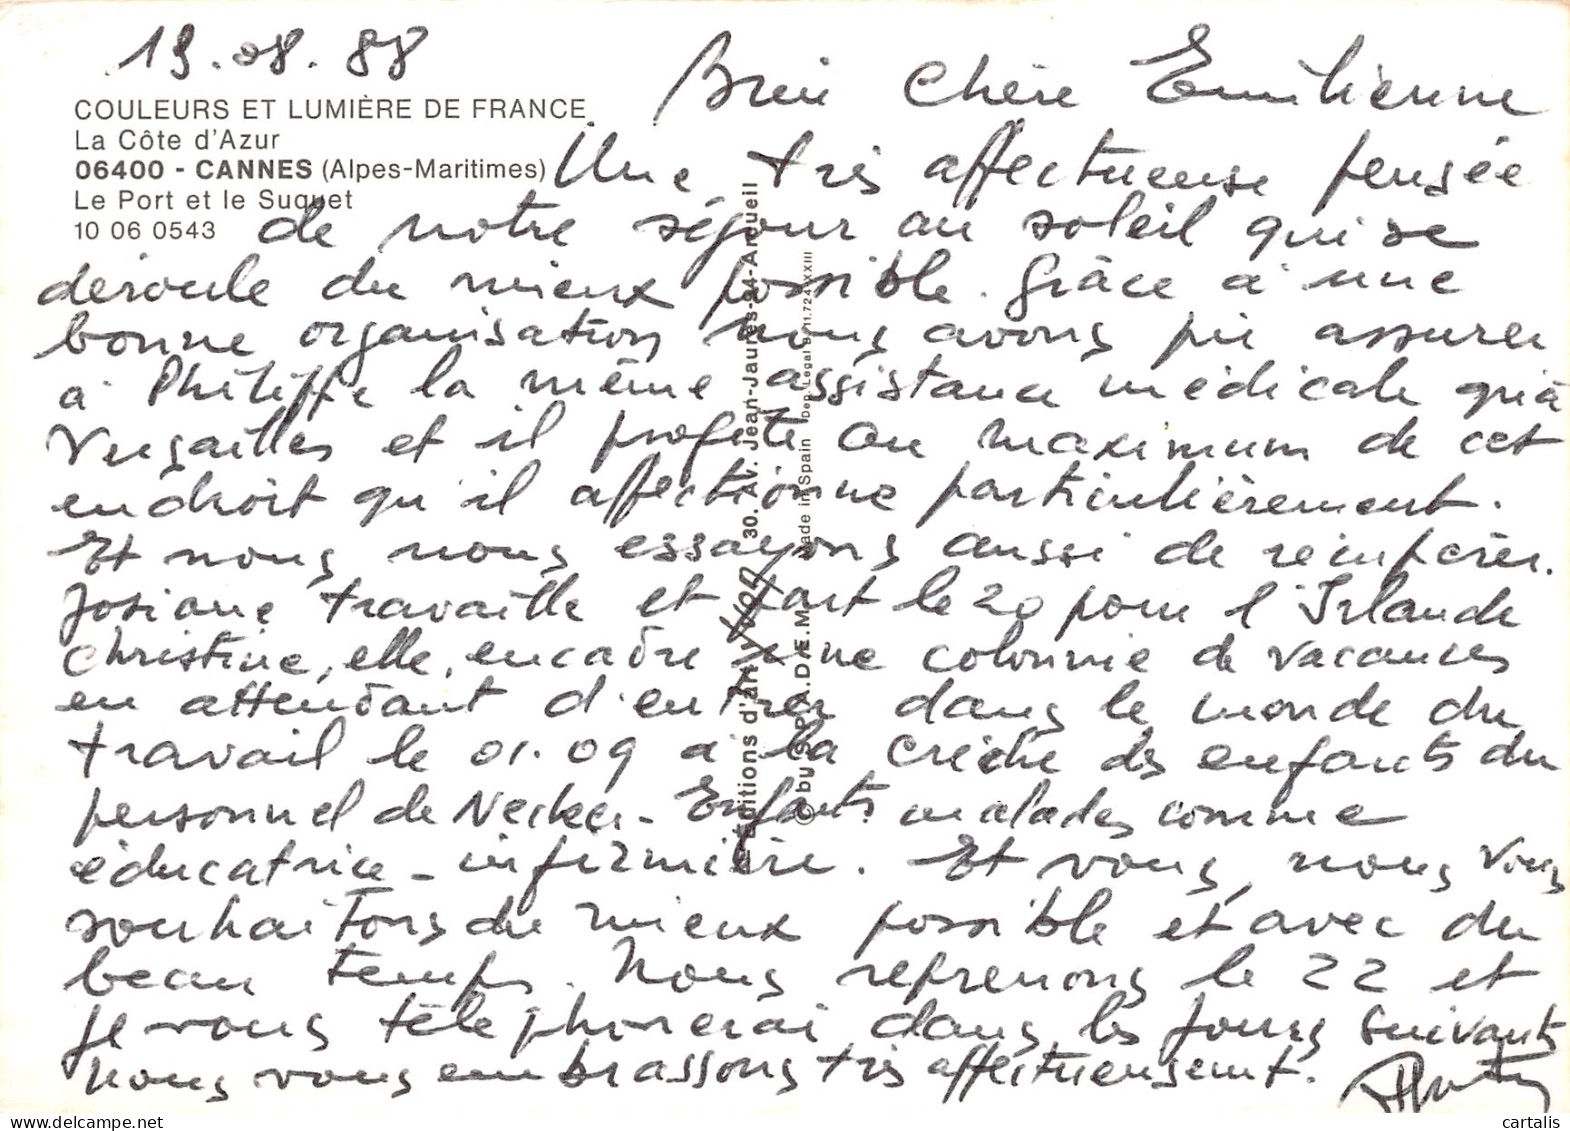 19.08.88
COULEURS ET LUMIÈRE DE FRANCE
La Côte d'Azur
06400 - CANNES (Alpes-Maritimes)
Le Port et le Suquet
10 06 0543
Bien Chère Emilienne
Une très affectueuse pensée
de notre séjour au soleil qui se
déroule du mieux possible. Grâce à une
bonne organisation nous avons pu assurer
à Philippe la même assistance médicale qu'à
Versailles et il profite au maximum de cet
endroit qu'il affectionne particulièrement.
Et nous nous essayons aussi de récupérer.
Josiane travaille et part le 20 pour l'Irlande
Christine, elle, encadre une colonnie de vacances
en attendant d'entrer dans le monde du
travail le 01.09 à la crèche des enfants du
personnel de Necker - Enfants malades comme
éducatrice - infirmière. Et vous, nous vous
souhaitons du mieux possible et avec du
beau temps. Nous reprenons le 22 et
je vous téléphonerai dans les jours suivants
Nous vous embrassons très affectueusement.
Éditions d'art
30. Av. Jean-Jaurès-94-Arcueil
© by S.P.A.D.E.M.
Made in Spain
cartalis